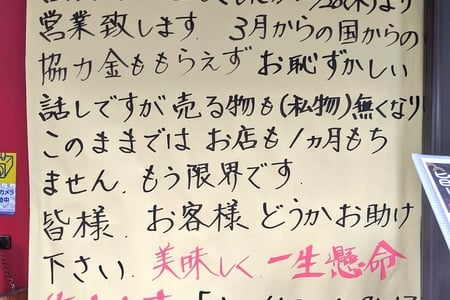 より
営業致します. 3月からの国からの
協力金ももらえず お恥ずかしい
話しですが 売る物も(私物)無くなり
このままでは お店も1ヵ月もち
ません. もう限界です.
皆様. お客様 どうかお助け
下さい. 美味しく. 一生懸命
カメラ